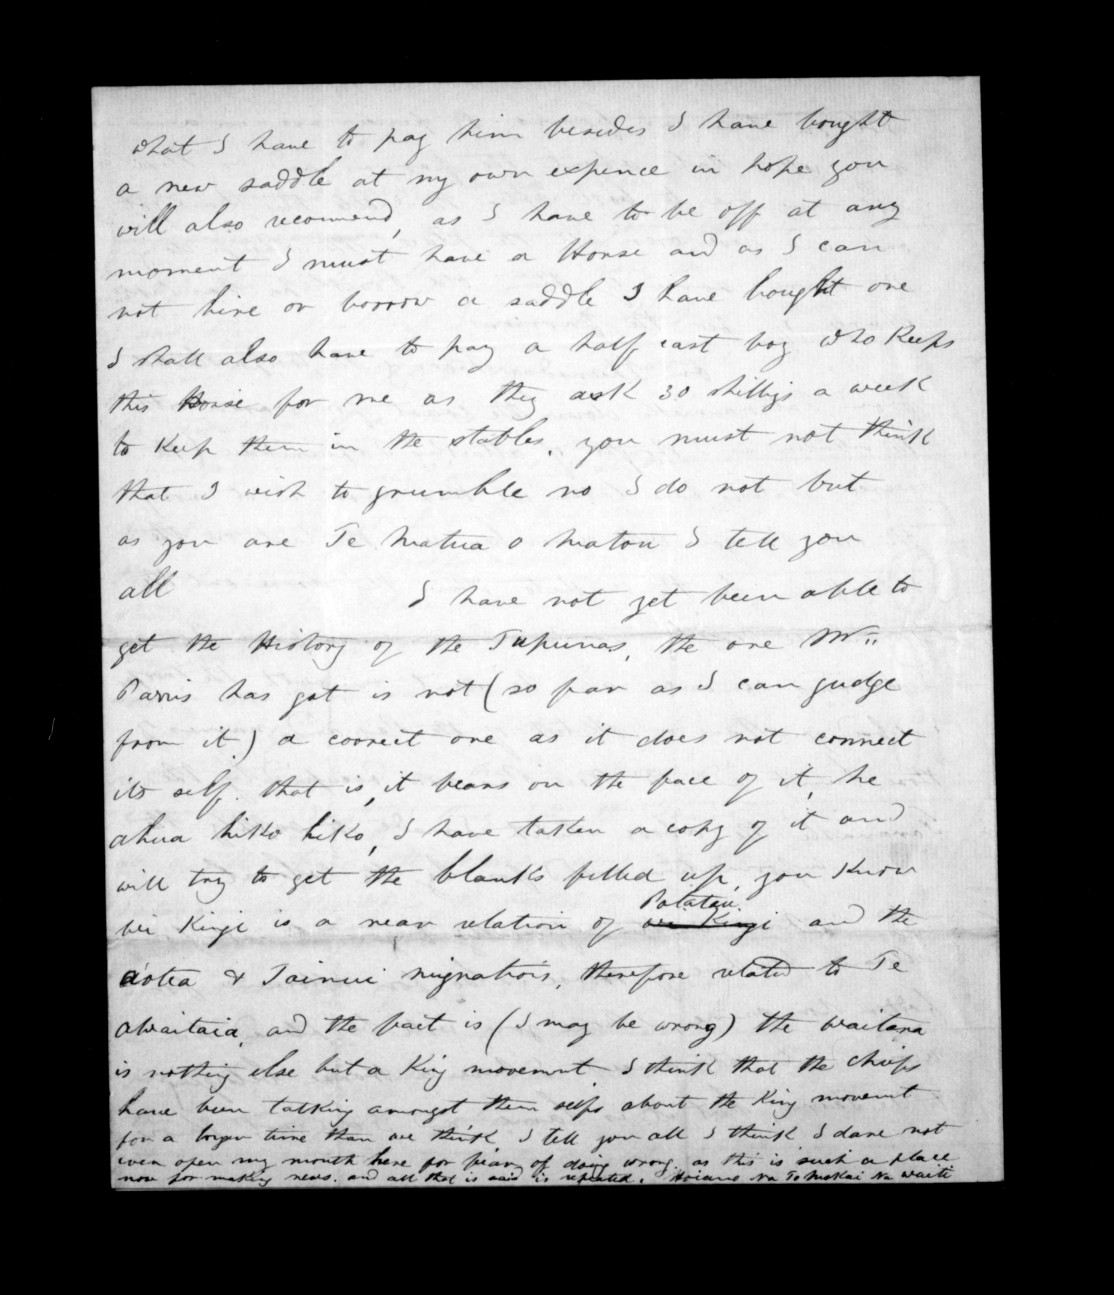 what I have to pay him besides I have bought
a new saddle at my own expence in hope you
will also recomend, as I have to be off at any
moment I must have a Horse and as I can
not hire or borrow a saddle I have bought one
I shall also have to pay a half cast boy who Keeps
this Horse for me as they ask 30 shilligs a week
to Keep them in the stables. you must not think
that I wish to grumble no I do not but
as you are Te Matua o Matou I tell you
all I have not yet been able to
get the History of the Tupunas, the one Mr
Parris has got is not (so far as I can judge
from it) a correct one as it does not connect
its self. that is, it bears on the face of it, he
ahua hiko hiko, I have taken a copy of it and
will try to get the blanks filled up, you Know
Wi Kingi is a near relation of Potatau wi Kingi and the
aotea & Tainui migrations, therefore related to Te
Awaitaia, and the fact is (I may be wrong) the Waitara
is nothing else but a King movement I think that the Chiefs
have been talking amongst them selfs about the King movemt
for a longer time than we think I tell you all I think I dare not
even open my mouth here for fear of doing wrong as this is such a place
now for making news. and all that is said is repeated. Hoiano na Te Mokai na Waiti